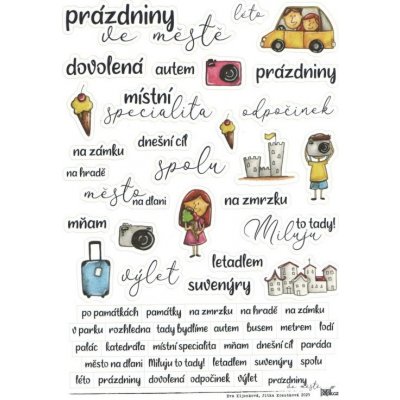 prázdniny
ve městě
léto
dovolená autem prázdniny
místní
specialita
odpočinek
dnešní cíl
na zámku
spolu
na hradě
město na dlani
na zmrzku
mňam
to tady!
Miluju
výlet
letadlem
suvenýry
po památkách památky na zmrzku na hradě na zámku
v parku rozhledna tady bydlíme autem busem metrem lodí
palác katedrála místní specialita mňam dnešní cíl paráda
město na dlani Miluju to tady! letadlem suvenýry spolu
léto prázdniny dovolená odpočinek výlet prázdniny
ve městě